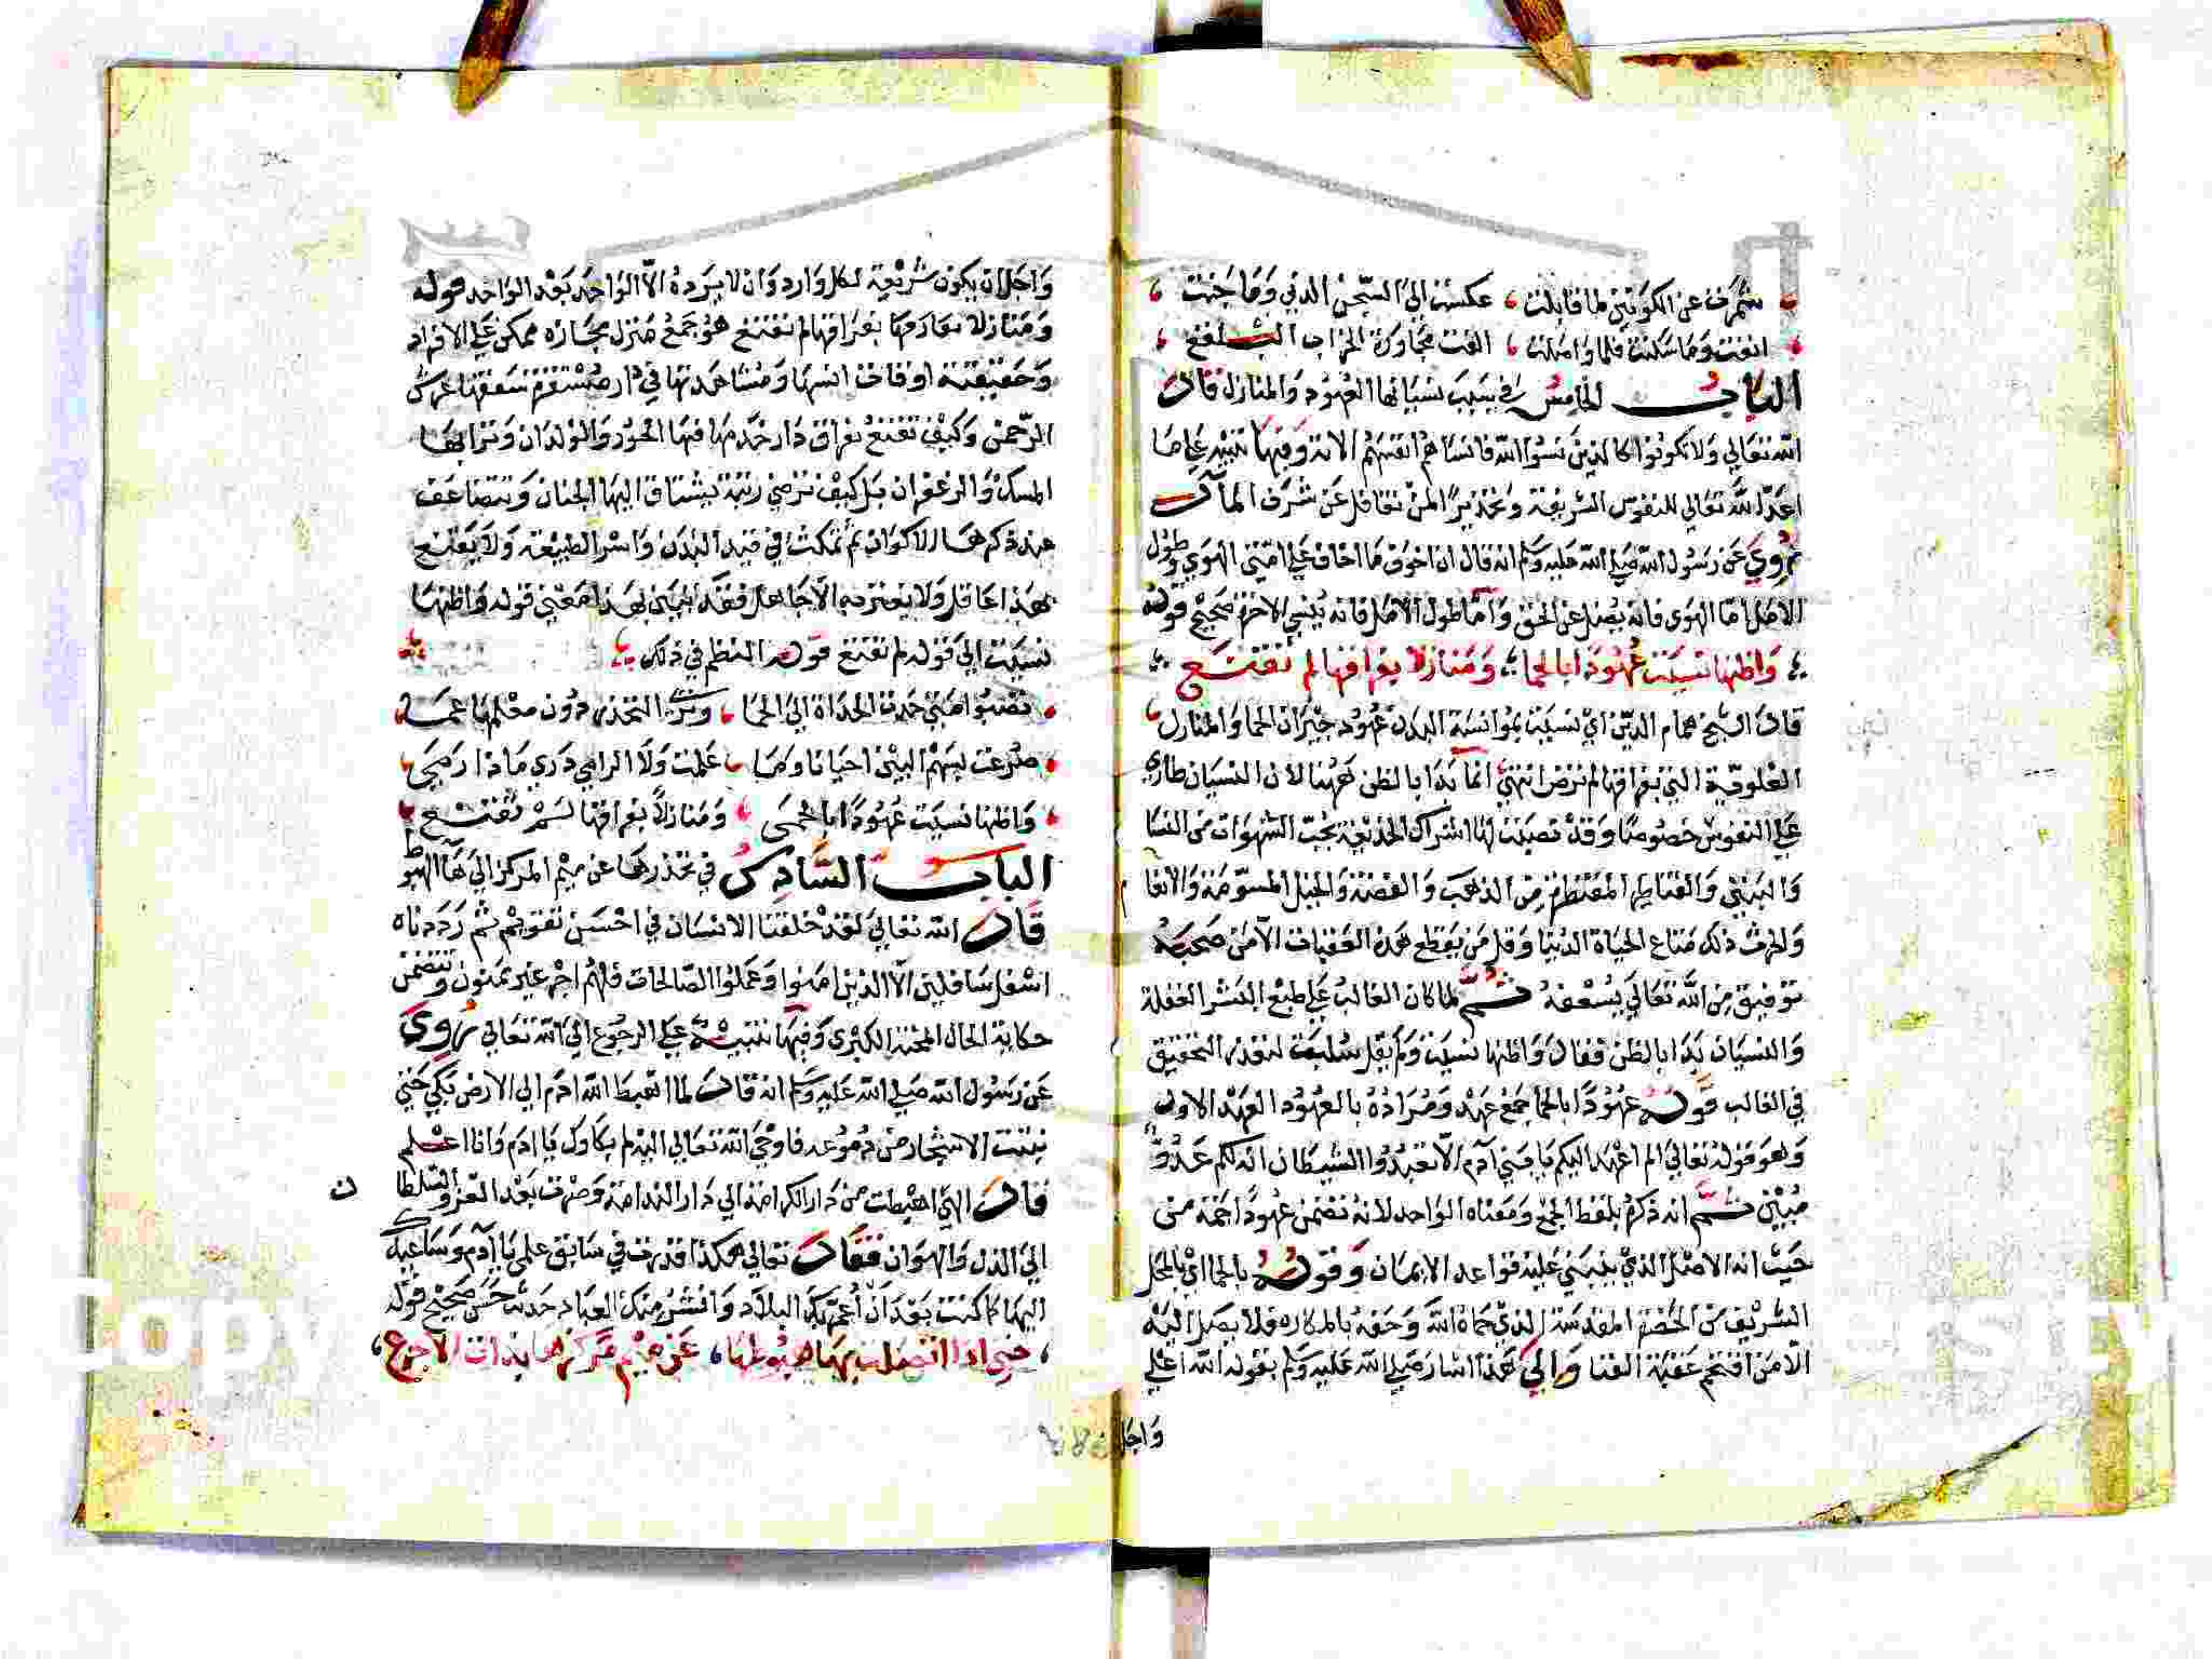 شرفت عن الكونين لما قابلت عكست الى السجن الدني وما جنت
انفت وما سكنت فلما واصلت الفت مجاورة الخراب البلقع
الباب الخامس في سبب نسيانها العهود والمنازل قال
الله تعالى ولا تكونوا كالذين نسوا الله فانساهم انفسهم الاية وفيها تنبيه على ما
اعد الله تعالى للنفوس الشريفة وتحذيرا لمن تغافل عن شرف المآل
روي عن رسول الله صلى الله عليه وسلم انه قال ان اخوف ما اخاف على امتي الهوي وطول
الامل اما الهوى فانه يضل عن الحق واما طول الامل فانه ينسي الاخرة صحيح قوله
واظنها نسيت عهودا بالحما ومنازلا بفراقها لم تقنع
قال الشيخ همام الدين اي نسيت بموانسة البدن عهود جيران الحما والمنازل
العلوية التي بفراقها لم ترض انتهي انما بدا بالظن ههنا لان النسيان طاري
على النفوس خصوصا وقد نصبت لها اشراك الخديعة بحب الشهوات من النسا
والبنين والقناطير المقنطرة من الذهب والفضة والخيل المسومة والانعا
والحرث ذلك متاع الحياة الدنيا وقل من يقطع هذه العقبات الا من صحبه
توفيق من الله تعالى يسعفه ثم لما كان الغالب على طبع البشر الغفلة
والنسيان بدا بالظن فقال واظنها نسيت ولم يقل سلبت لتعذر التحقيق
في الغالب قوله عهودا بالحما جمع عهد ومراده بالعهود العهد الاول
وهو قوله تعالى الم اعهد اليكم يا بني آدم الا تعبدوا الشيطان انه لكم عدو
مبين ثم انه ذكره بلفظ الجمع ومعناه الواحد لانه تضمن عهودا جمة من
حيث انه الاصل الذي ينبني عليه قواعد الايمان وقوله بالحما اي بالمحل
الشريف من الحضرة المقدسة الذي حماه الله وحفه بالمكاره فلا يصل اليه
الا من اقتحم عقبة الفنا والى هذا اشار صلى الله عليه وسلم بقوله الله اعلي
واجل
واجل ان يكون شريعة لكل وارد وان لا يرده الا الواحد بعد الواحد قوله
ومنازلا بفراقها لم تقنع هو جمع منزل مجازه ممكن على الافراد
وحقيقته اوقات انسها ومشاهدتها في دار مستقرة سقفها عرش
الرحمن وكيف تقنع بفراق دار خدمها فيها الحور والولدان وترابها
المسك والزعفران بل كيف ترضي رتبة يشتاق اليها الجنان وتتضاعف
عند ذكرها الاكوان ثم تمكث في قيد البدن واسر الطبيعة ولا يقنع
بهذا عاقل ولا يغتر به الا جاهل فقد تبين بهذا معني قوله واظنها
نسيت الي قوله لم تقنع قوله النظم في ذلك
حدت الحداة الى الحما دون معلمها عما
بسهم البين احيانا وما علمت ولا الرامي دري ماذا رمي
واظنها نسيت عهودا بالحمى ومنازلا بفراقها لم تقنع
الباب السادس في تحذرها عن ميم المركز الى هآ الهبوط
قال الله تعالى لقد خلقنا الانسان في احسن تقويم ثم رددناه
اسفل سافلين الا الذين امنوا وعملوا الصالحات فلهم اجر غير ممنون وتتضمن
حكاية الحال المحنة الكبرى وفيها تنبيه على الرجوع الى الله تعالى روي
عن رسول الله صلى الله عليه وسلم انه قال لما اهبط الله ادم الى الارض بكي حتي
نبتت الاشجار من دموعه فاوحي الله تعالى اليه لم بكاوك يا ادم وانا اعلم
قال الهي اهبطت من دار الكرامة الى دار الندامة وصرت بعد العز والسلطا ن
الى الذل والهوان فقال تعالى هكذا قدرت في سابق علمي يا آدم وساعيدك
اليها كما كنت بعد ان اعمر بك البلاد وافشر منك العباد حديث حسن صحيح قوله
حتى اذا اتصلت بهاء هبوطها عن ميم مركزها بذات الاجرع